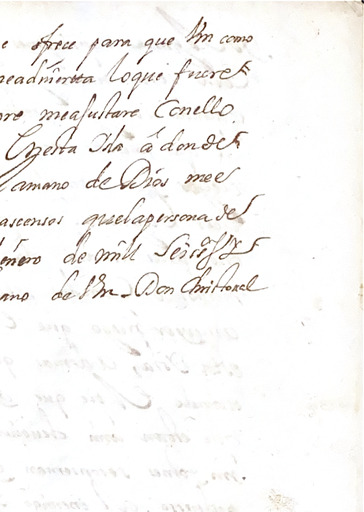 e ofrece para que Vm como
meadvierta loque fuere
pre meajustare Conello
Enesta Isla â donde
amano de Dios me
ascensos quelapersona de
enero de mill Seisos y
mano de Vm Don Christoual